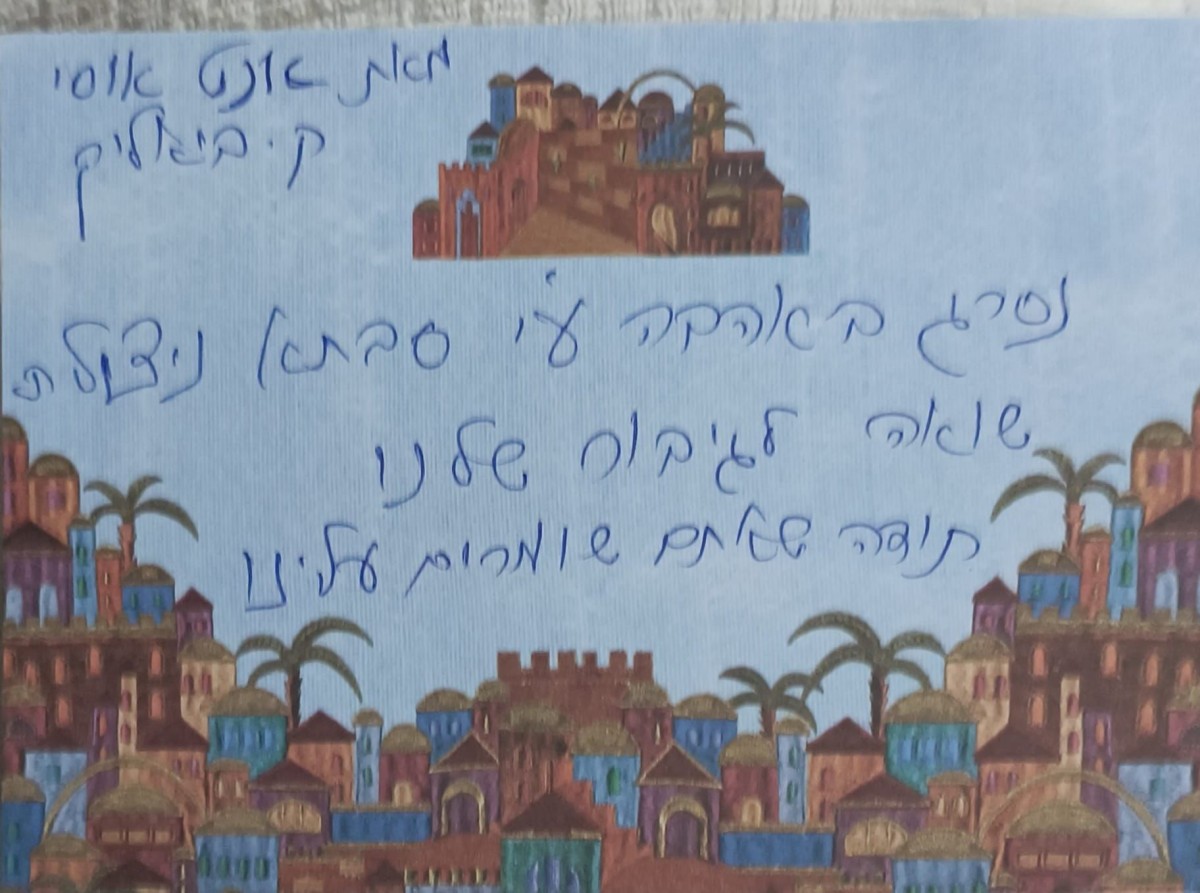 מאת אנט אוסי
ק. ביאליק
נסרג באהבה ע"י סבתא ניצולת
שואה לגיבור שלנו
תודה שאתם שומרים עלינו